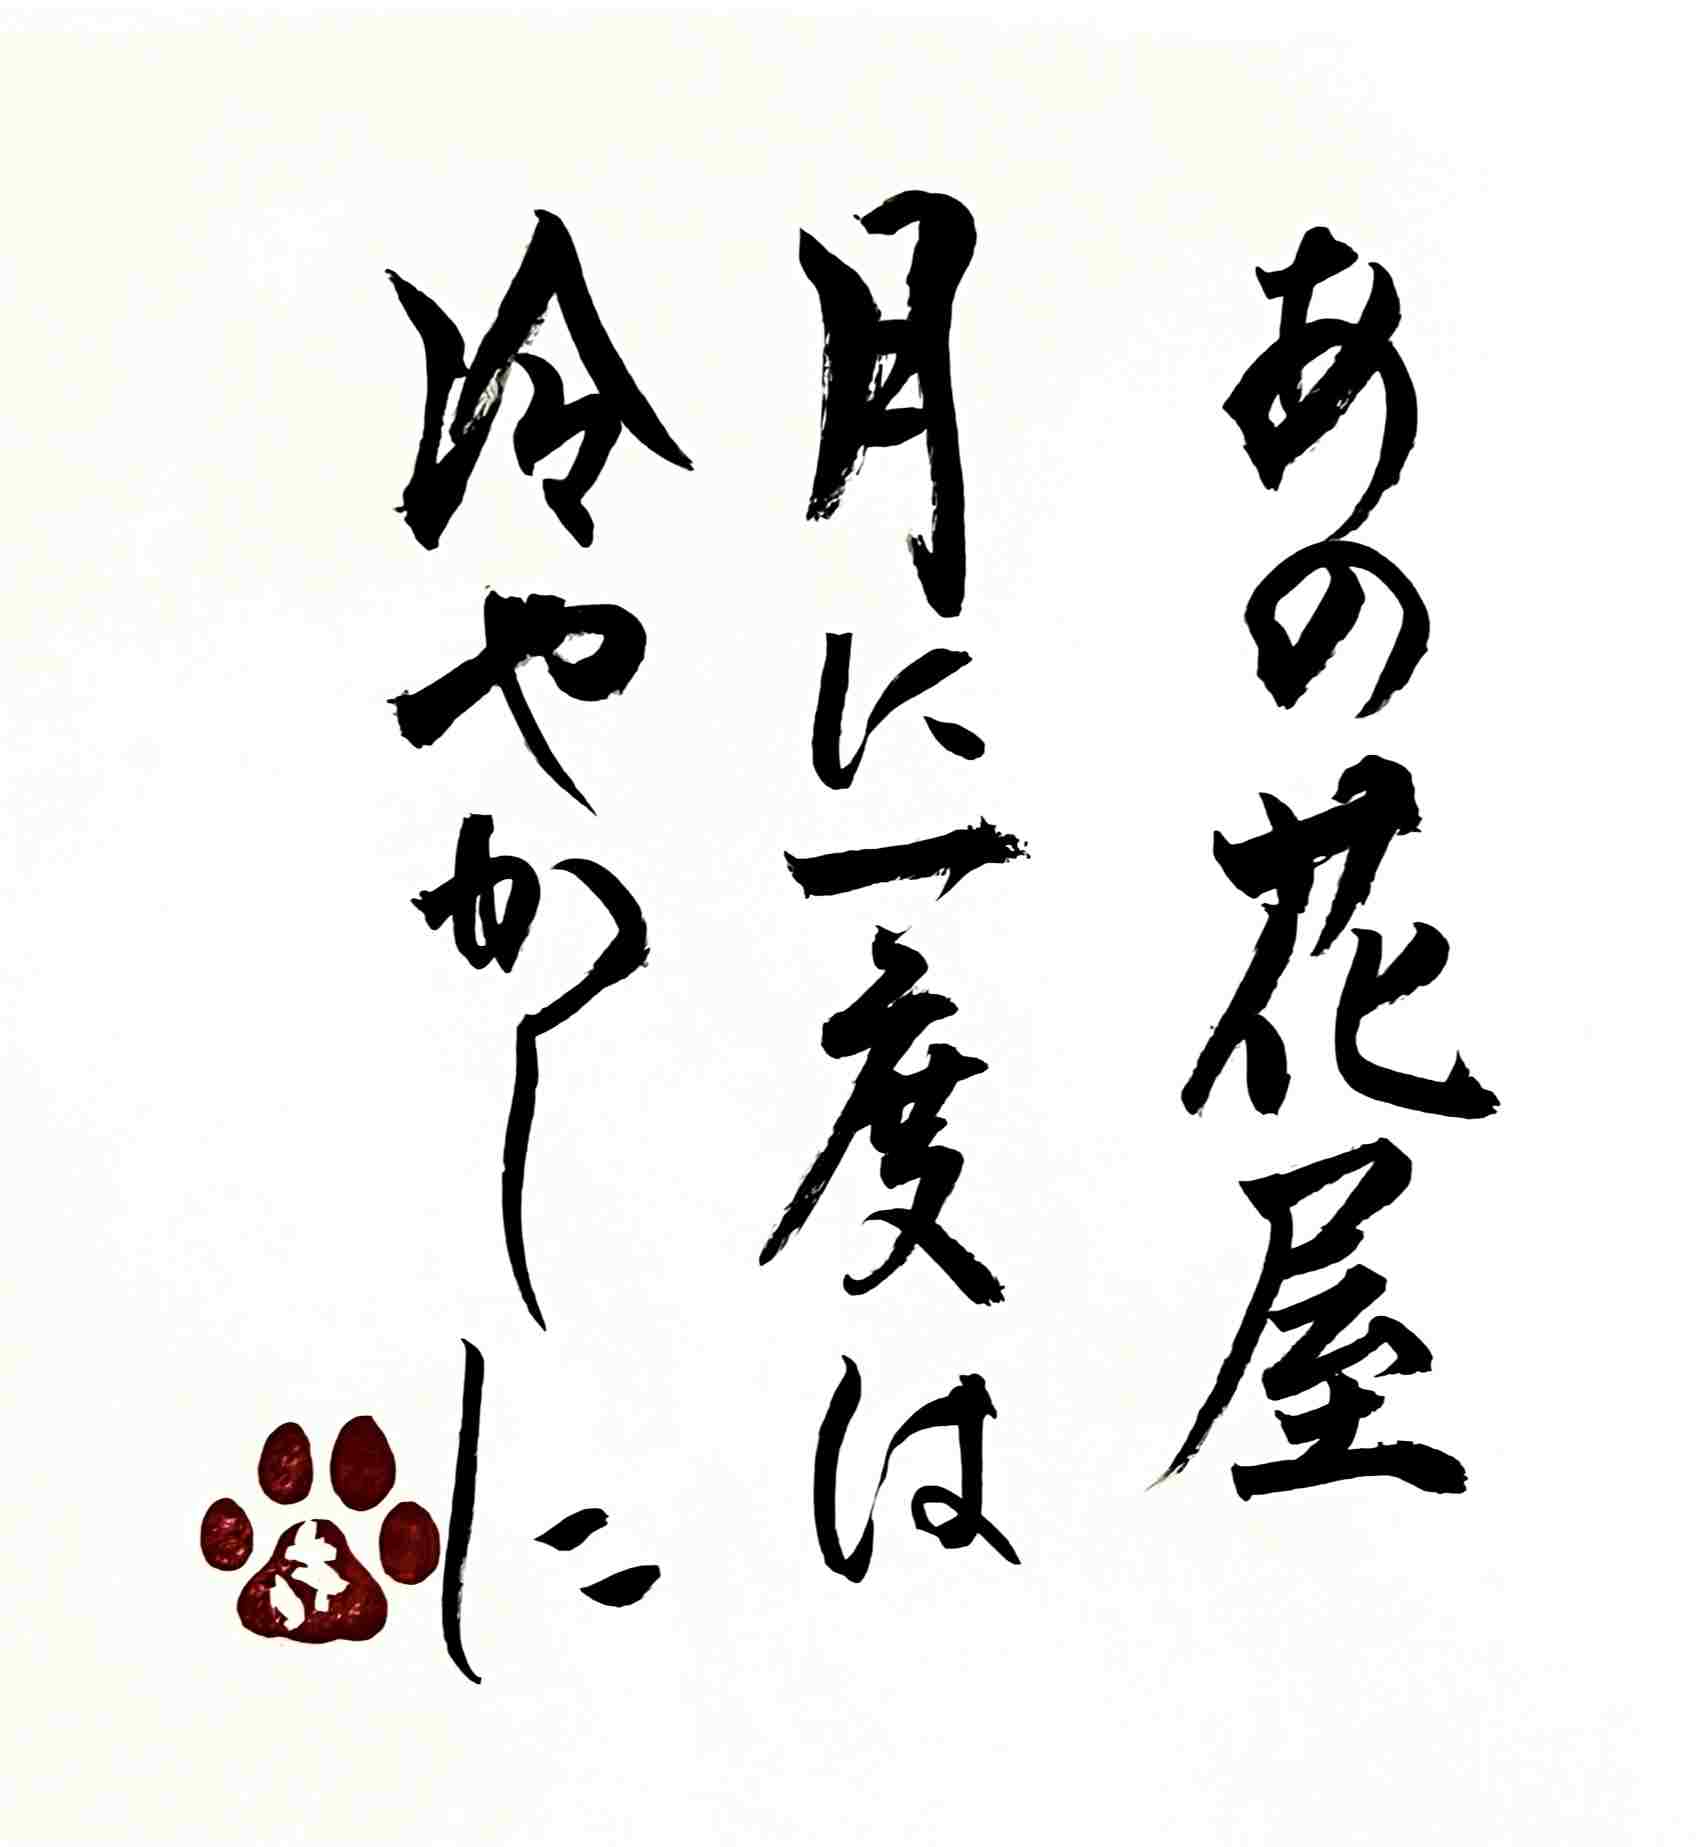 あの花屋
月に一度は
冷やかしに